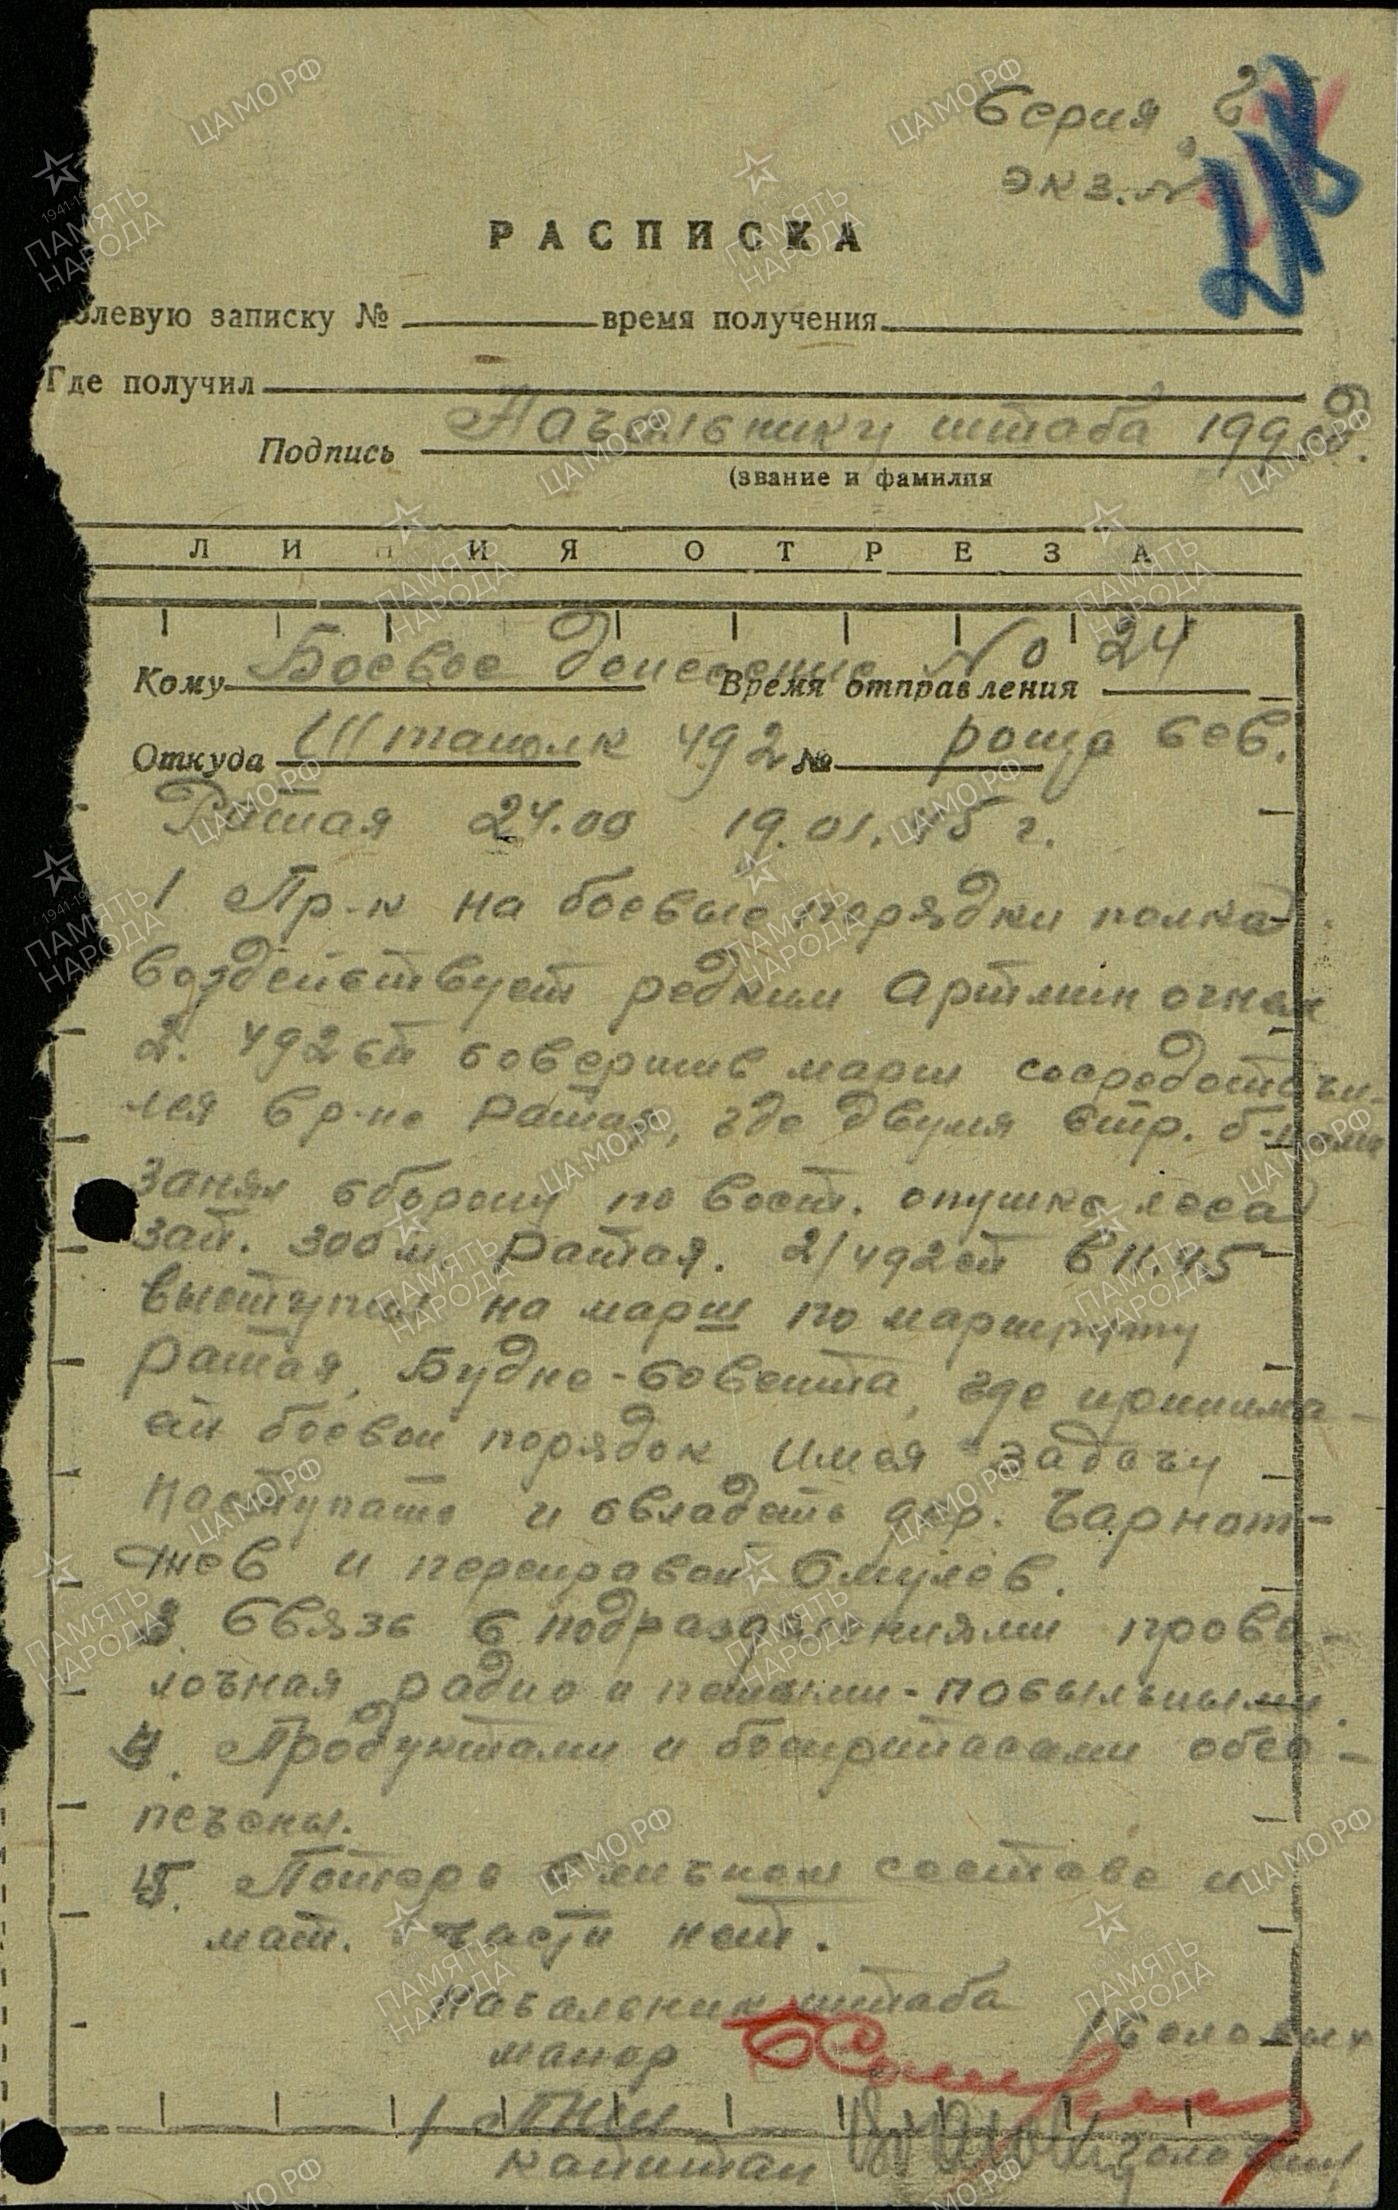 Серия
экз. №
218
РАСПИСКА
олевую записку № время получения
Где получил
Начальнику штаба 199 сд.
Подпись
(звание и фамилия
ЛИНИЯ ОТРЕЗА
Боевое донесение № 24
Кому Время отправления
Штаполк 492 роща сев.
Откуда №
Ратая 24.00 19.01.45 г.
1 Пр-к на боевые порядки полка
воздействует редким артмин огнем
2. 492 сп совершив марш сосредоточи-
лся в р-не Ратая, где двумя стр. б-нами
занял оборону по вост. опушке леса
зап. 300 м. Ратая. 2/492 сп в 11.45
выступил на марш по маршруту
Ратая, Будне-Совента, где принима-
ет боевой порядок имея задачу
наступать и овладеть дер. Чарнот-
жев и переправой Омулев.
3. Связь с подразделениями прово-
лочная радио и пешими-посыльными.
4. Продуктами и боеприпасами обес-
печены.
5. Потерь в личном составе и
мат. части нет.
Начальник штаба
майор
1 ПНШ
капитан
ЦА МО РФ
ПАМЯТЬ НАРОДА
1941-1945